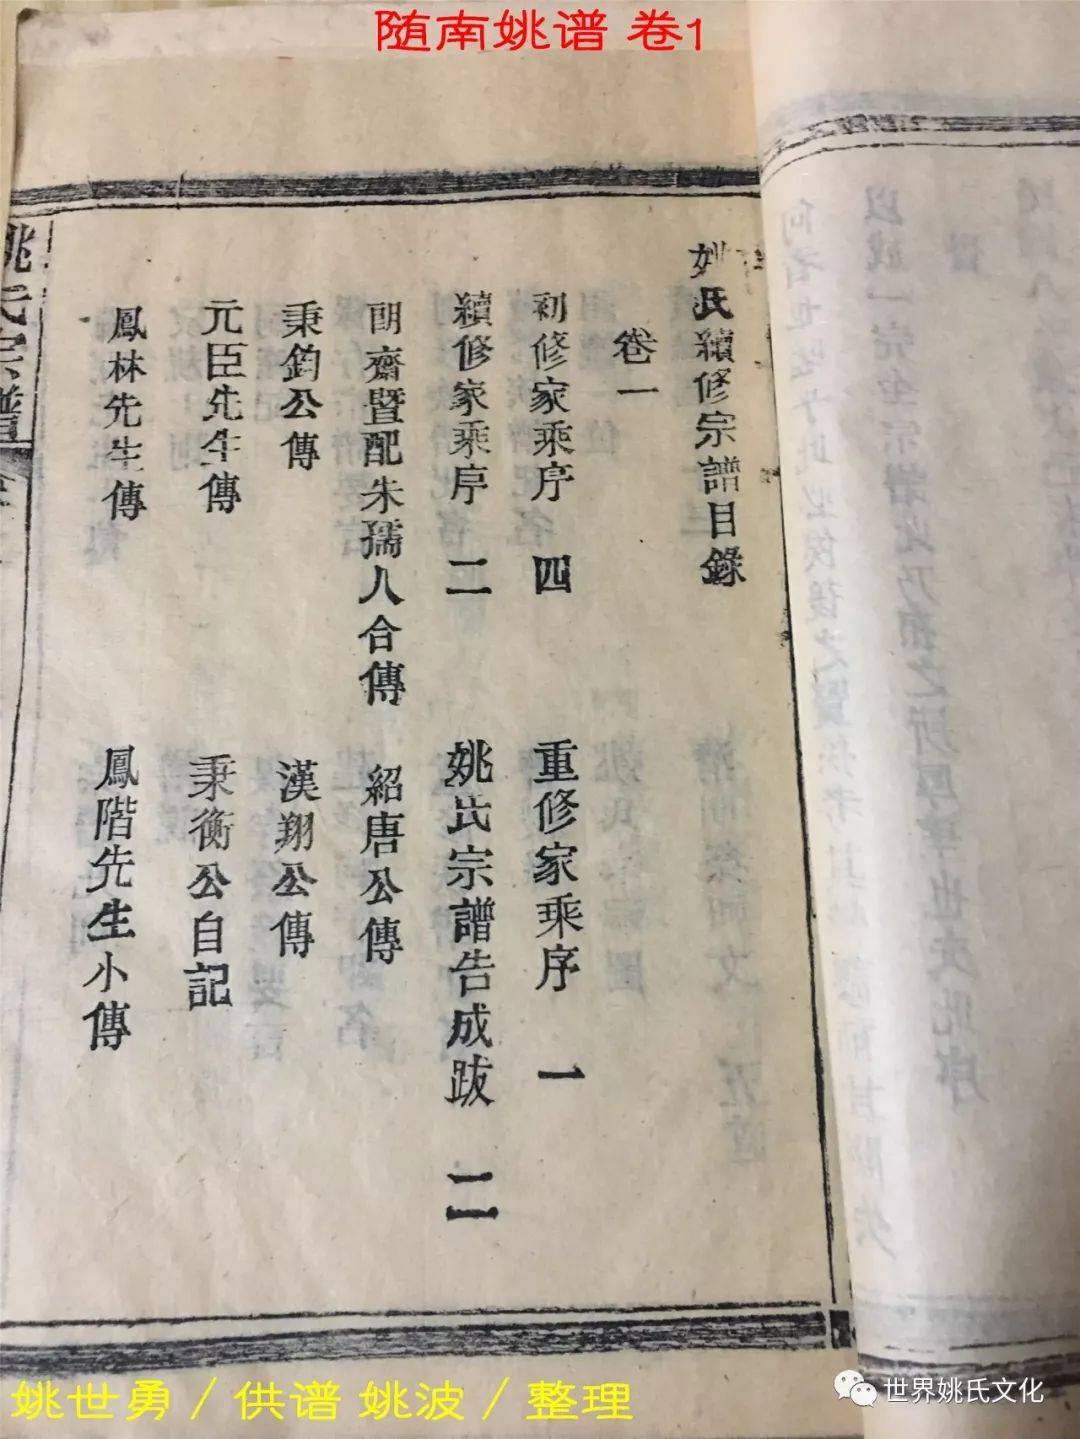 随南姚谱 卷1
姚氏續修宗譜目錄
卷一
初修家乘序 四 重修家乘序 一
續修家乘序 二 姚氏宗譜告成跋 二
朗齋暨配朱孺人合傳 紹唐公傳
秉鈞公傳 漢翔公傳
元臣先生傳 秉衡公自記
鳳林先生傳 鳳階先生小傳
姚氏宗譜
姚世勇／供谱 姚波／整理
世界姚氏文化